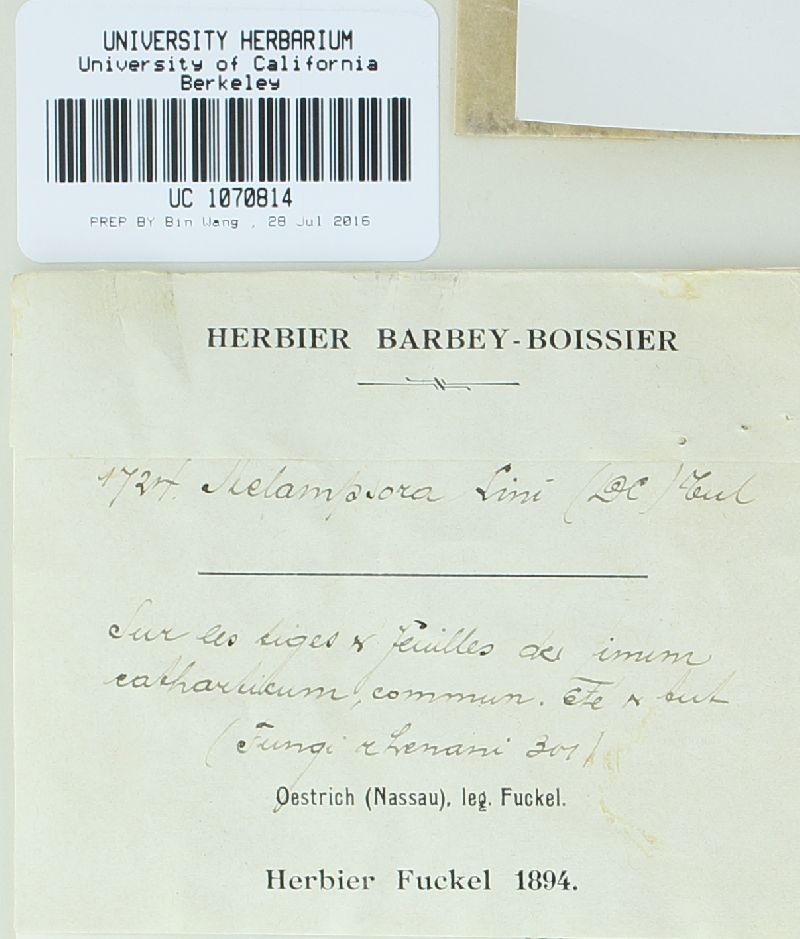 UNIVERSITY HERBARIUM
University of California
Berkeley
UC 1070814
PREP BY Bin Wang , 28 Jul 2016
HERBIER BARBEY-BOISSIER
1724. Melampsora Lini (DC) Tul
Sur les tiges & feuilles de
catharticum, commun. &
(Fungi rhenani 301)
Oestrich (Nassau), leg. Fuckel.
Herbier Fuckel 1894.